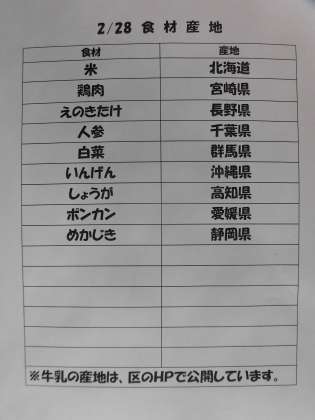 2/28 食材産地
食材 産地
米 北海道
鶏肉 宮崎県
えのきたけ 長野県
人参 千葉県
白菜 群馬県
いんげん 沖縄県
しょうが 高知県
ポンカン 愛媛県
めかじき 静岡県
※牛乳の産地は、区のHPで公開しています。